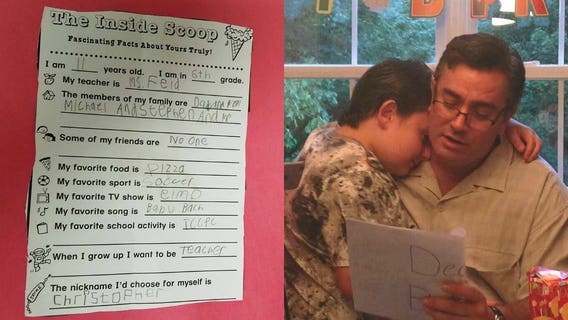 The Inside Scoop
Fascinating Facts About Yours Truly!
I am 11 years old. I am in 6th grade.
My teacher is Ms. Reid
The members of my family are
Michael And Stephen And Me
Some of my friends are No one
My favorite food is Pizza
My favorite sport is Soccer
My favorite TV show is elmo
My favorite song is Baby Bach
My favorite school activity is
When I grow up I want be Teacher
The nickname I'd choose for myself is
Christopher
Dea